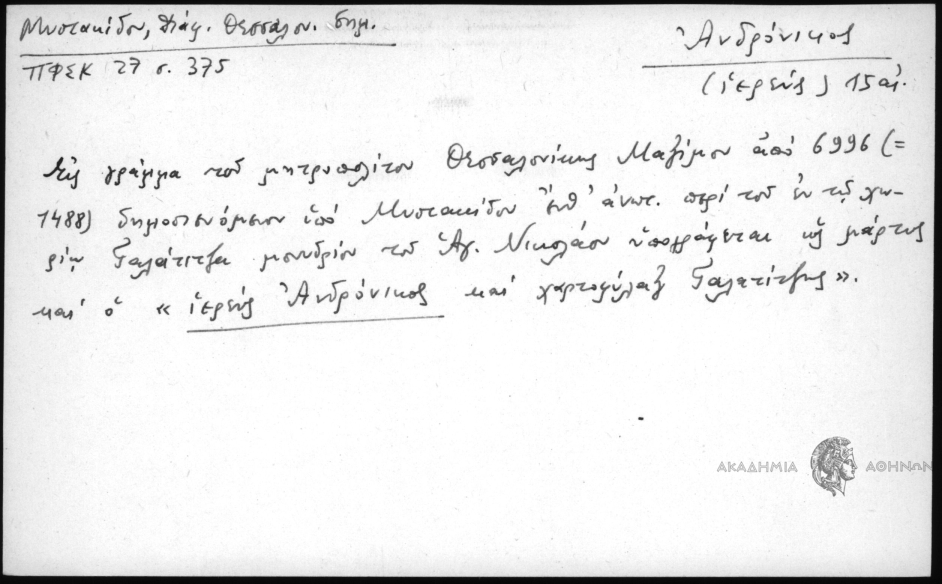 Μυστακίδου, Διάφ. Θεσσαλον. σημ.
ΠΦΣΚ 27 σ. 375
Ἀνδρόνικος
(ἱερεὺς) 15 αἰ.
Εἰς γράμμα τοῦ μητροπολίτου Θεσσαλονίκης Μαξίμου ἀπό 6996 (=
1488) δημοσιευόμενον ὑπό Μυστακίδου ἔνθ' ἀνωτ. περί τοῦ ἐν τῷ χω-
ρίῳ Γαλάτιτζα μονυδρίου τοῦ Ἁγ. Νικολάου ὑπογράφεται ὡς μάρτυς
καί ὁ « ἱερεύς Ἀνδρόνικος καί χαρτοφύλαξ Γαλατίτζης ».
ΑΚΑΔΗΜΙΑ ΑΘΗΝΩΝ